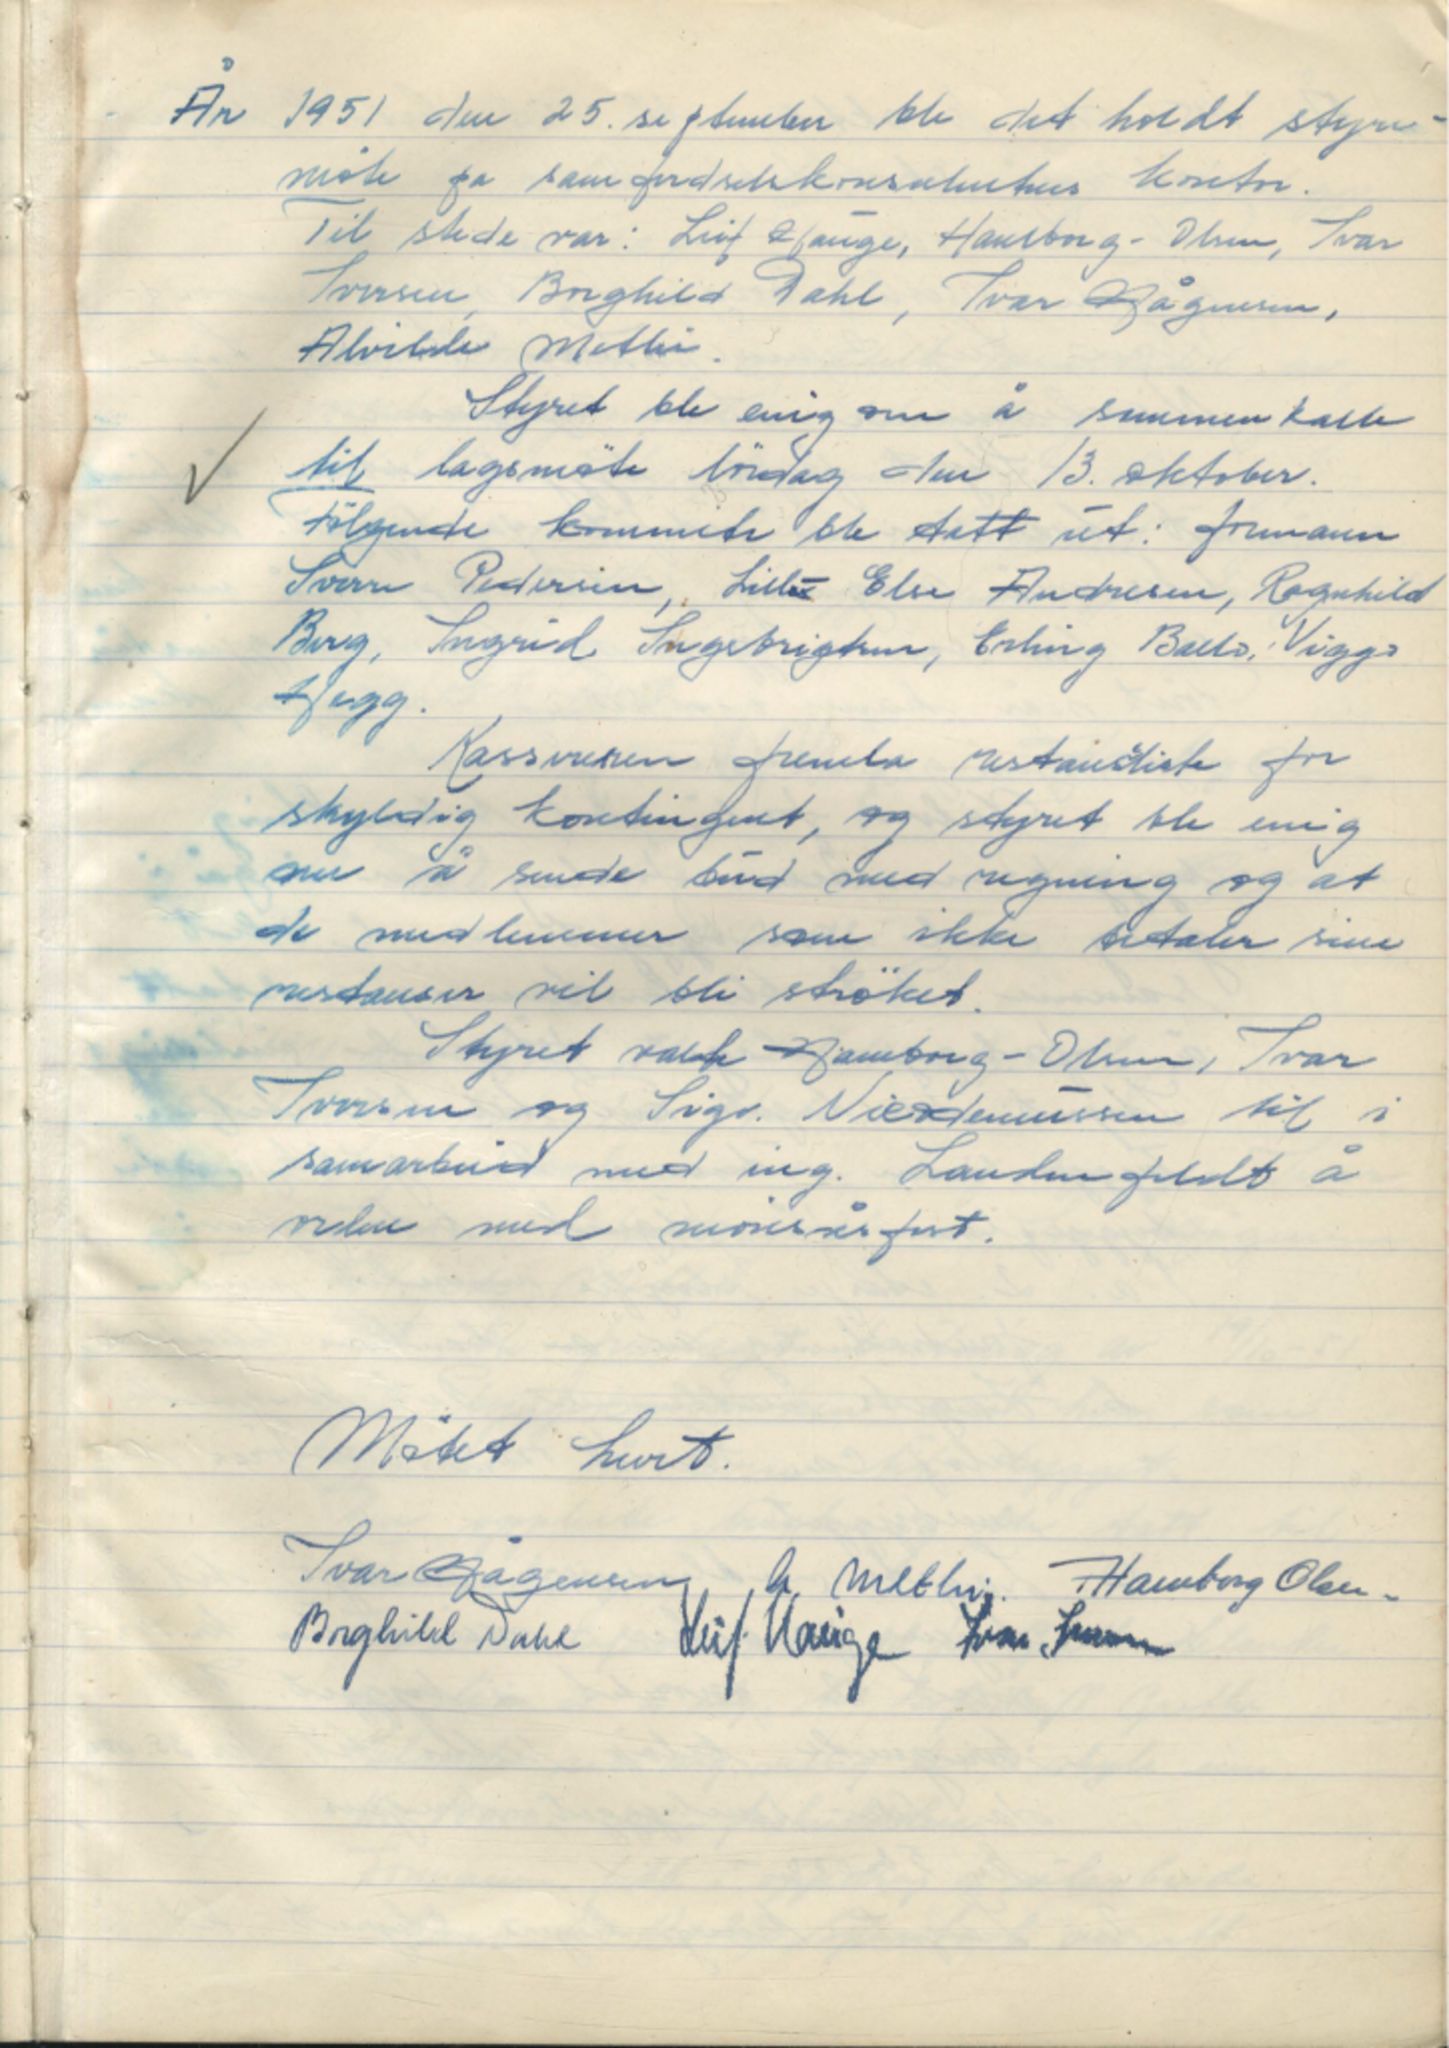 År 1951 den 25. september ble det holdt styre-
møte på samferdselskonsulentens kontor.
Til stede var: Leif Hauge, Hamborg-Olsen, Ivar
Iversen, Borghild Dahl, Ivar Hågensen,
Alvilde Methi.
Styret ble enig om å sammenkalle
til lagsmöte lördag den 13. oktober.
Fölgende kommite ble tatt ut: formann
Sverre Pedersen, Else Andresen, Ragnhild
Berg, Ingrid Ingebrigtsen, Erling Balto, Viggo
Hegg.
Kassereren fremla restanseliste for
skyldig kontingent, og styret ble enig
om å sende bud med regning og at
de medlemmer som ikke betaler sine
restanser vil bli ströket.
Styret valgte Hamborg-Olsen, Ivar
Iversen og Sigv. Nicodemussen til i
samarbeid med ing. å
ordne med revest.
Møtet hevet.
Ivar Hågensen A. Methi. Hamborg Olsen
Borghild Dahl Leif Hauge Ivar Iversen